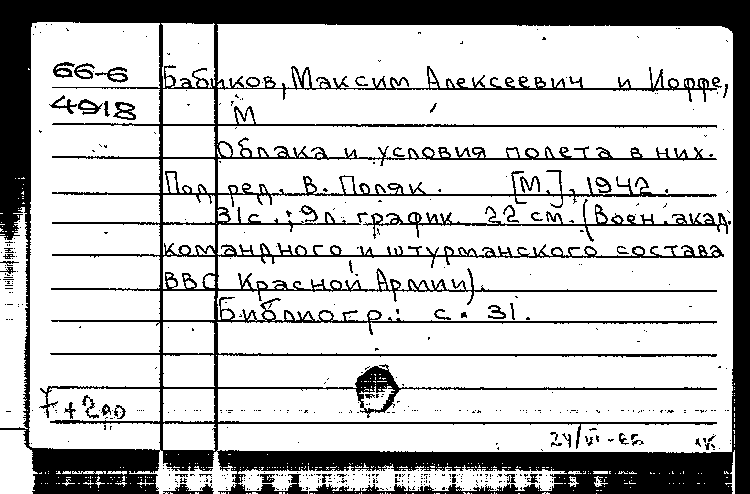 66-6 Бабиков, Максим Алексеевич и Иоффе,
4918 М
Облака и условия полета в них.
Под ред. В. Поляк. [М.], 1942.
31с.; 9л. график. 22 см. (Воен. акад.
командного и штурманского состава
ВВС Красной Армии).
Библиогр.: с. 31.
24/VI-66